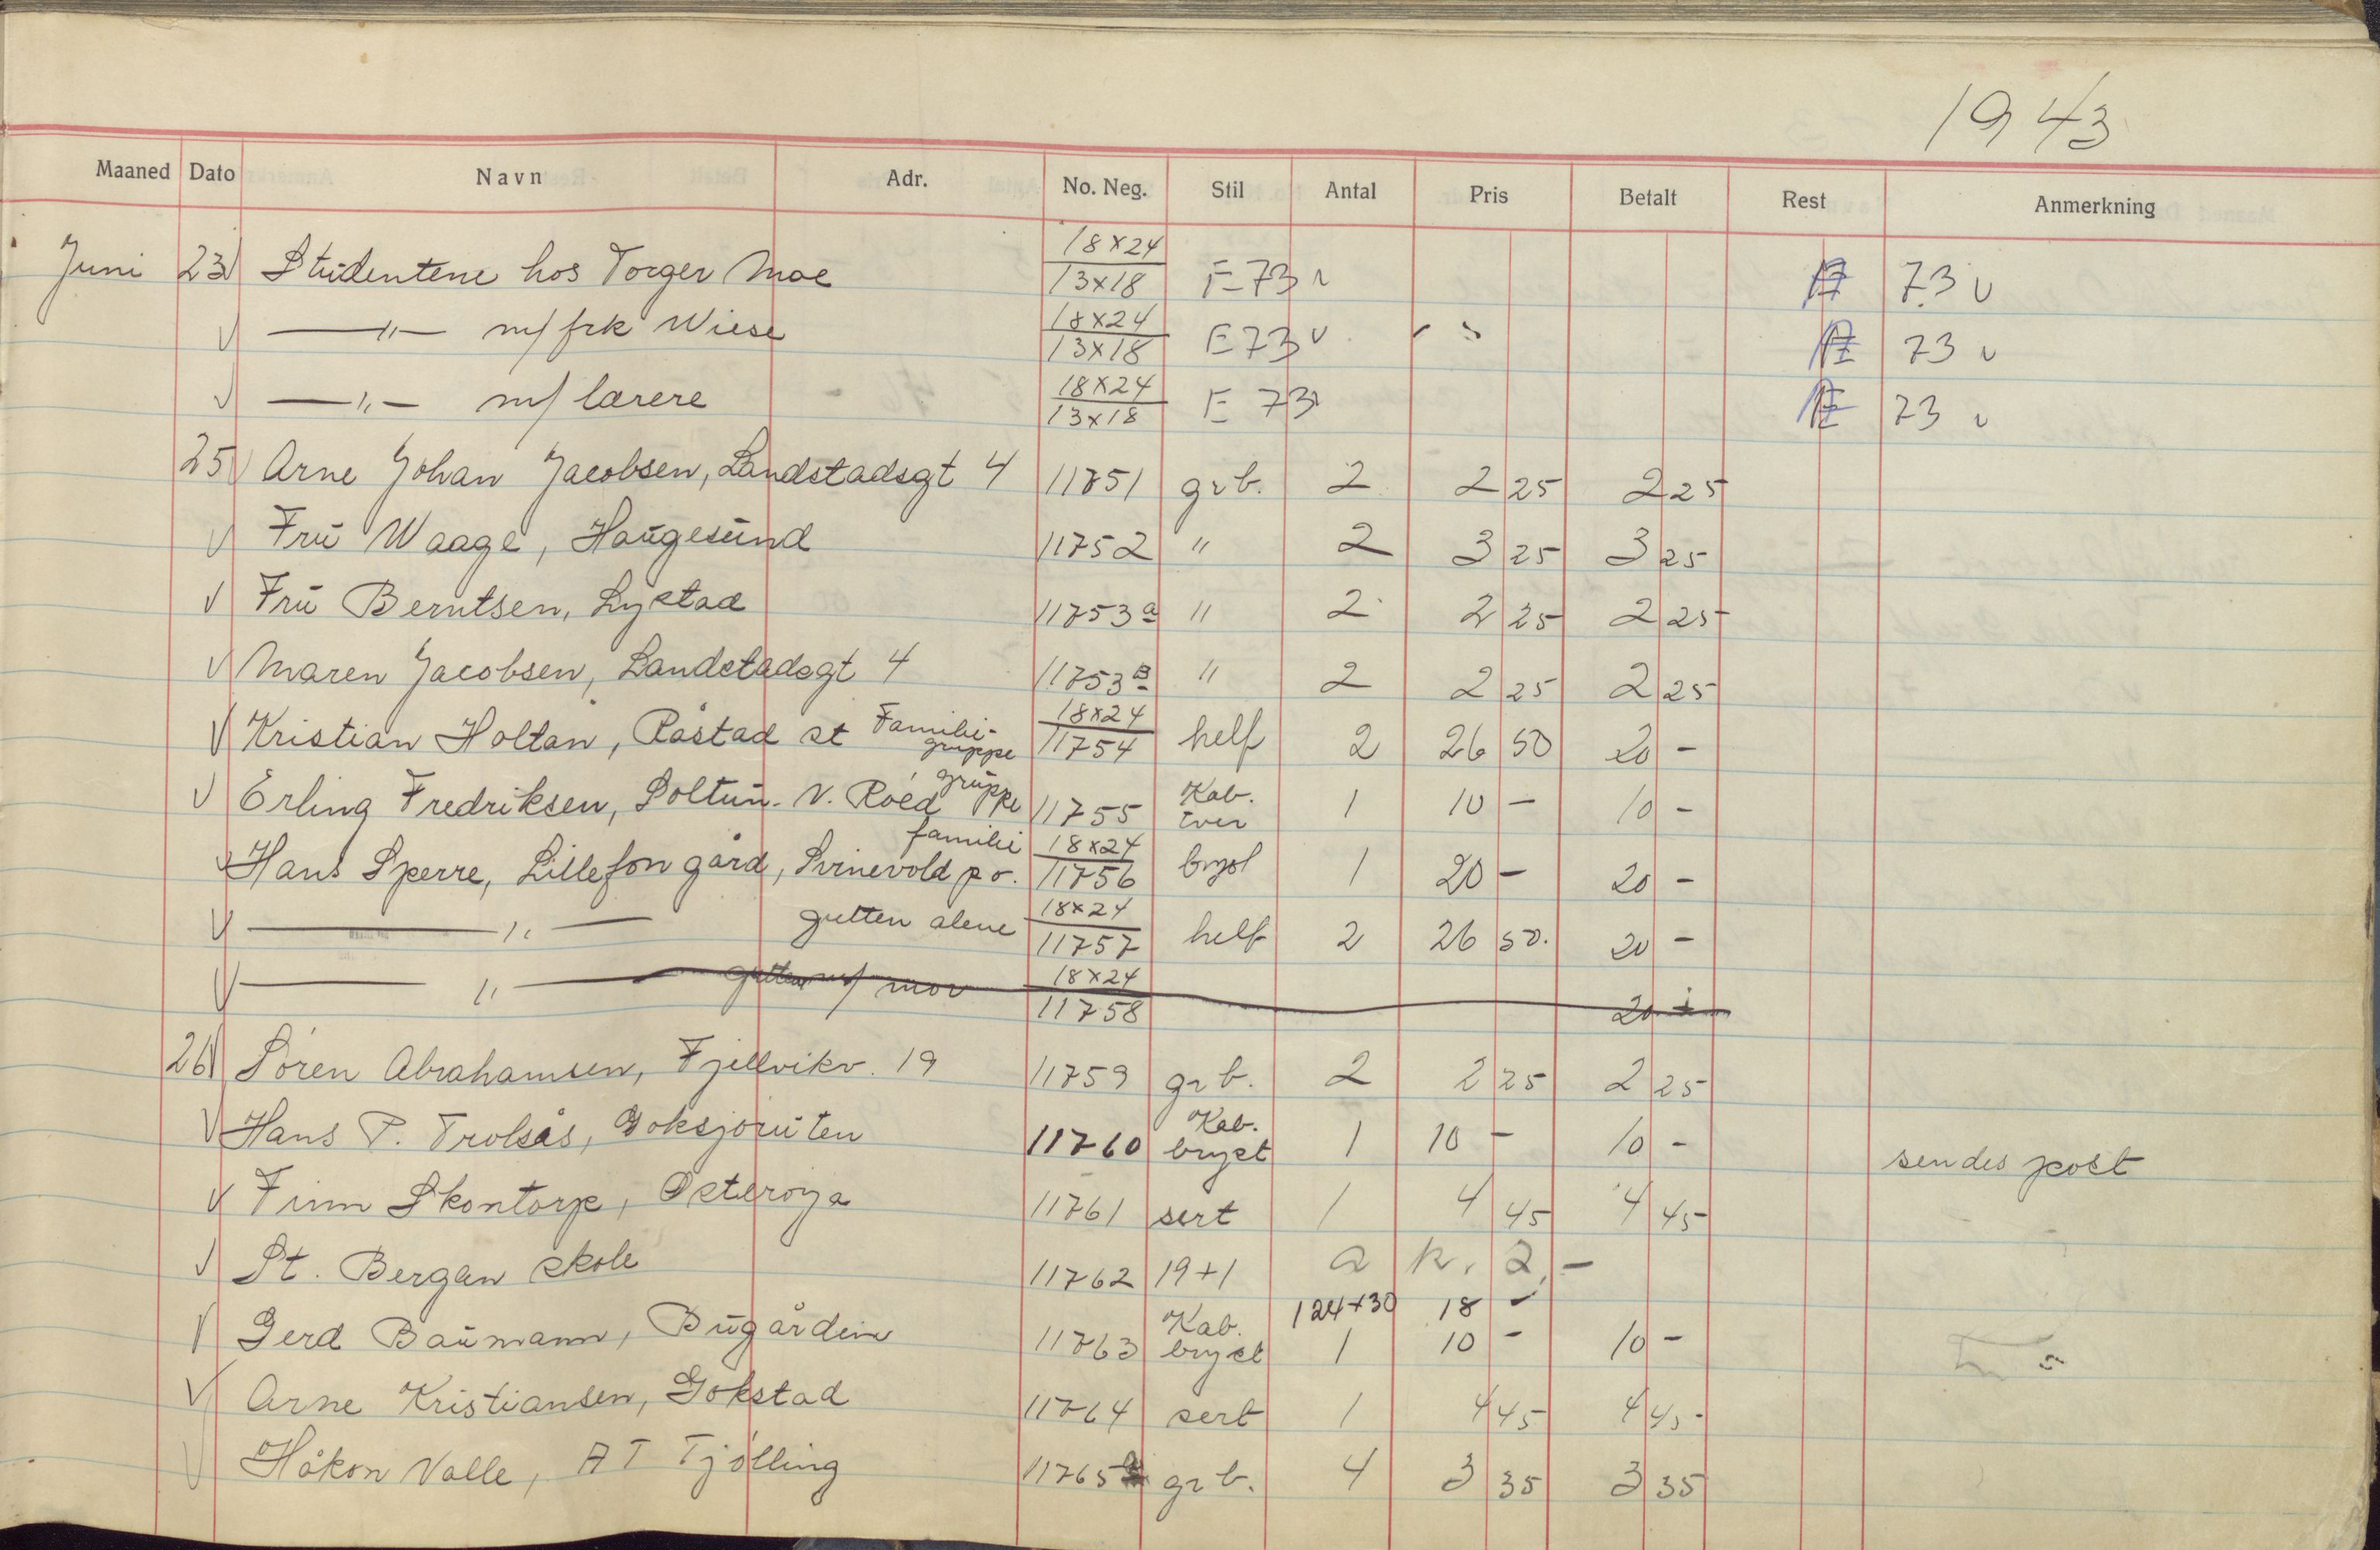 1943
Maaned Dato Navn Adr. No. Neg. Stil Antal Pris Betalt Rest Anmerkning
Juni 23 Studentene hos Torger Moe 18x24 / 13x18 E 73 73
—"— m/ frk Wiese 18x24 / 13x18 E 73 73
—"— m/ lærere 18x24 / 13x18 E 73 73
25 Arne Johan Jacobsen, Landstadsgt 4 11751 grb. 2 2 25 2 25
Fru Waage, Haugesund 11752 " 2 3 25 3 25
Fru Berntsen, Lystad 11753a " 2 2 25 2 25
Maren Jacobsen, Landstadsgt 4 11753B " 2 2 25 2 25
Kristian Holtan, Råstad st Familie-gruppe 18x24 / 11754 helf 2 26 50 20 -
Erling Fredriksen, Soltun. V. Roed gruppe 11755 Kab. tver 1 10 - 10 -
Hans Sperre, Lillefon gård, Svinevold p.o. familie 18x24 / 11756 1 20 - 20 -
—"— gutten alene 18x24 / 11757 helf 2 26 50. 20 -
—"— gutten m/ mor 18x24 / 11758 20
26 Sören Abrahamsen, Fjellvikv. 19 11759 grb. 2 2 25 2 25
Hans P. Trolsås, Goksjöruten 11760 Kab. bryst 1 10 - 10 - sendes post
Finn Skontorp, Österöya 11761 sert 1 4 45 4 45
St. Bergan skole 11762 19+1 a k. 2,-
124+30 18 -
Gerd Baumann, Bugården 11763 Kab. bryst 1 10 - 10 -
Arne Kristiansen, Gokstad 11764 sert 1 4 45 4 45
Håkon Valle, AT Tjölling 11765 grb. 4 3 35 3 35